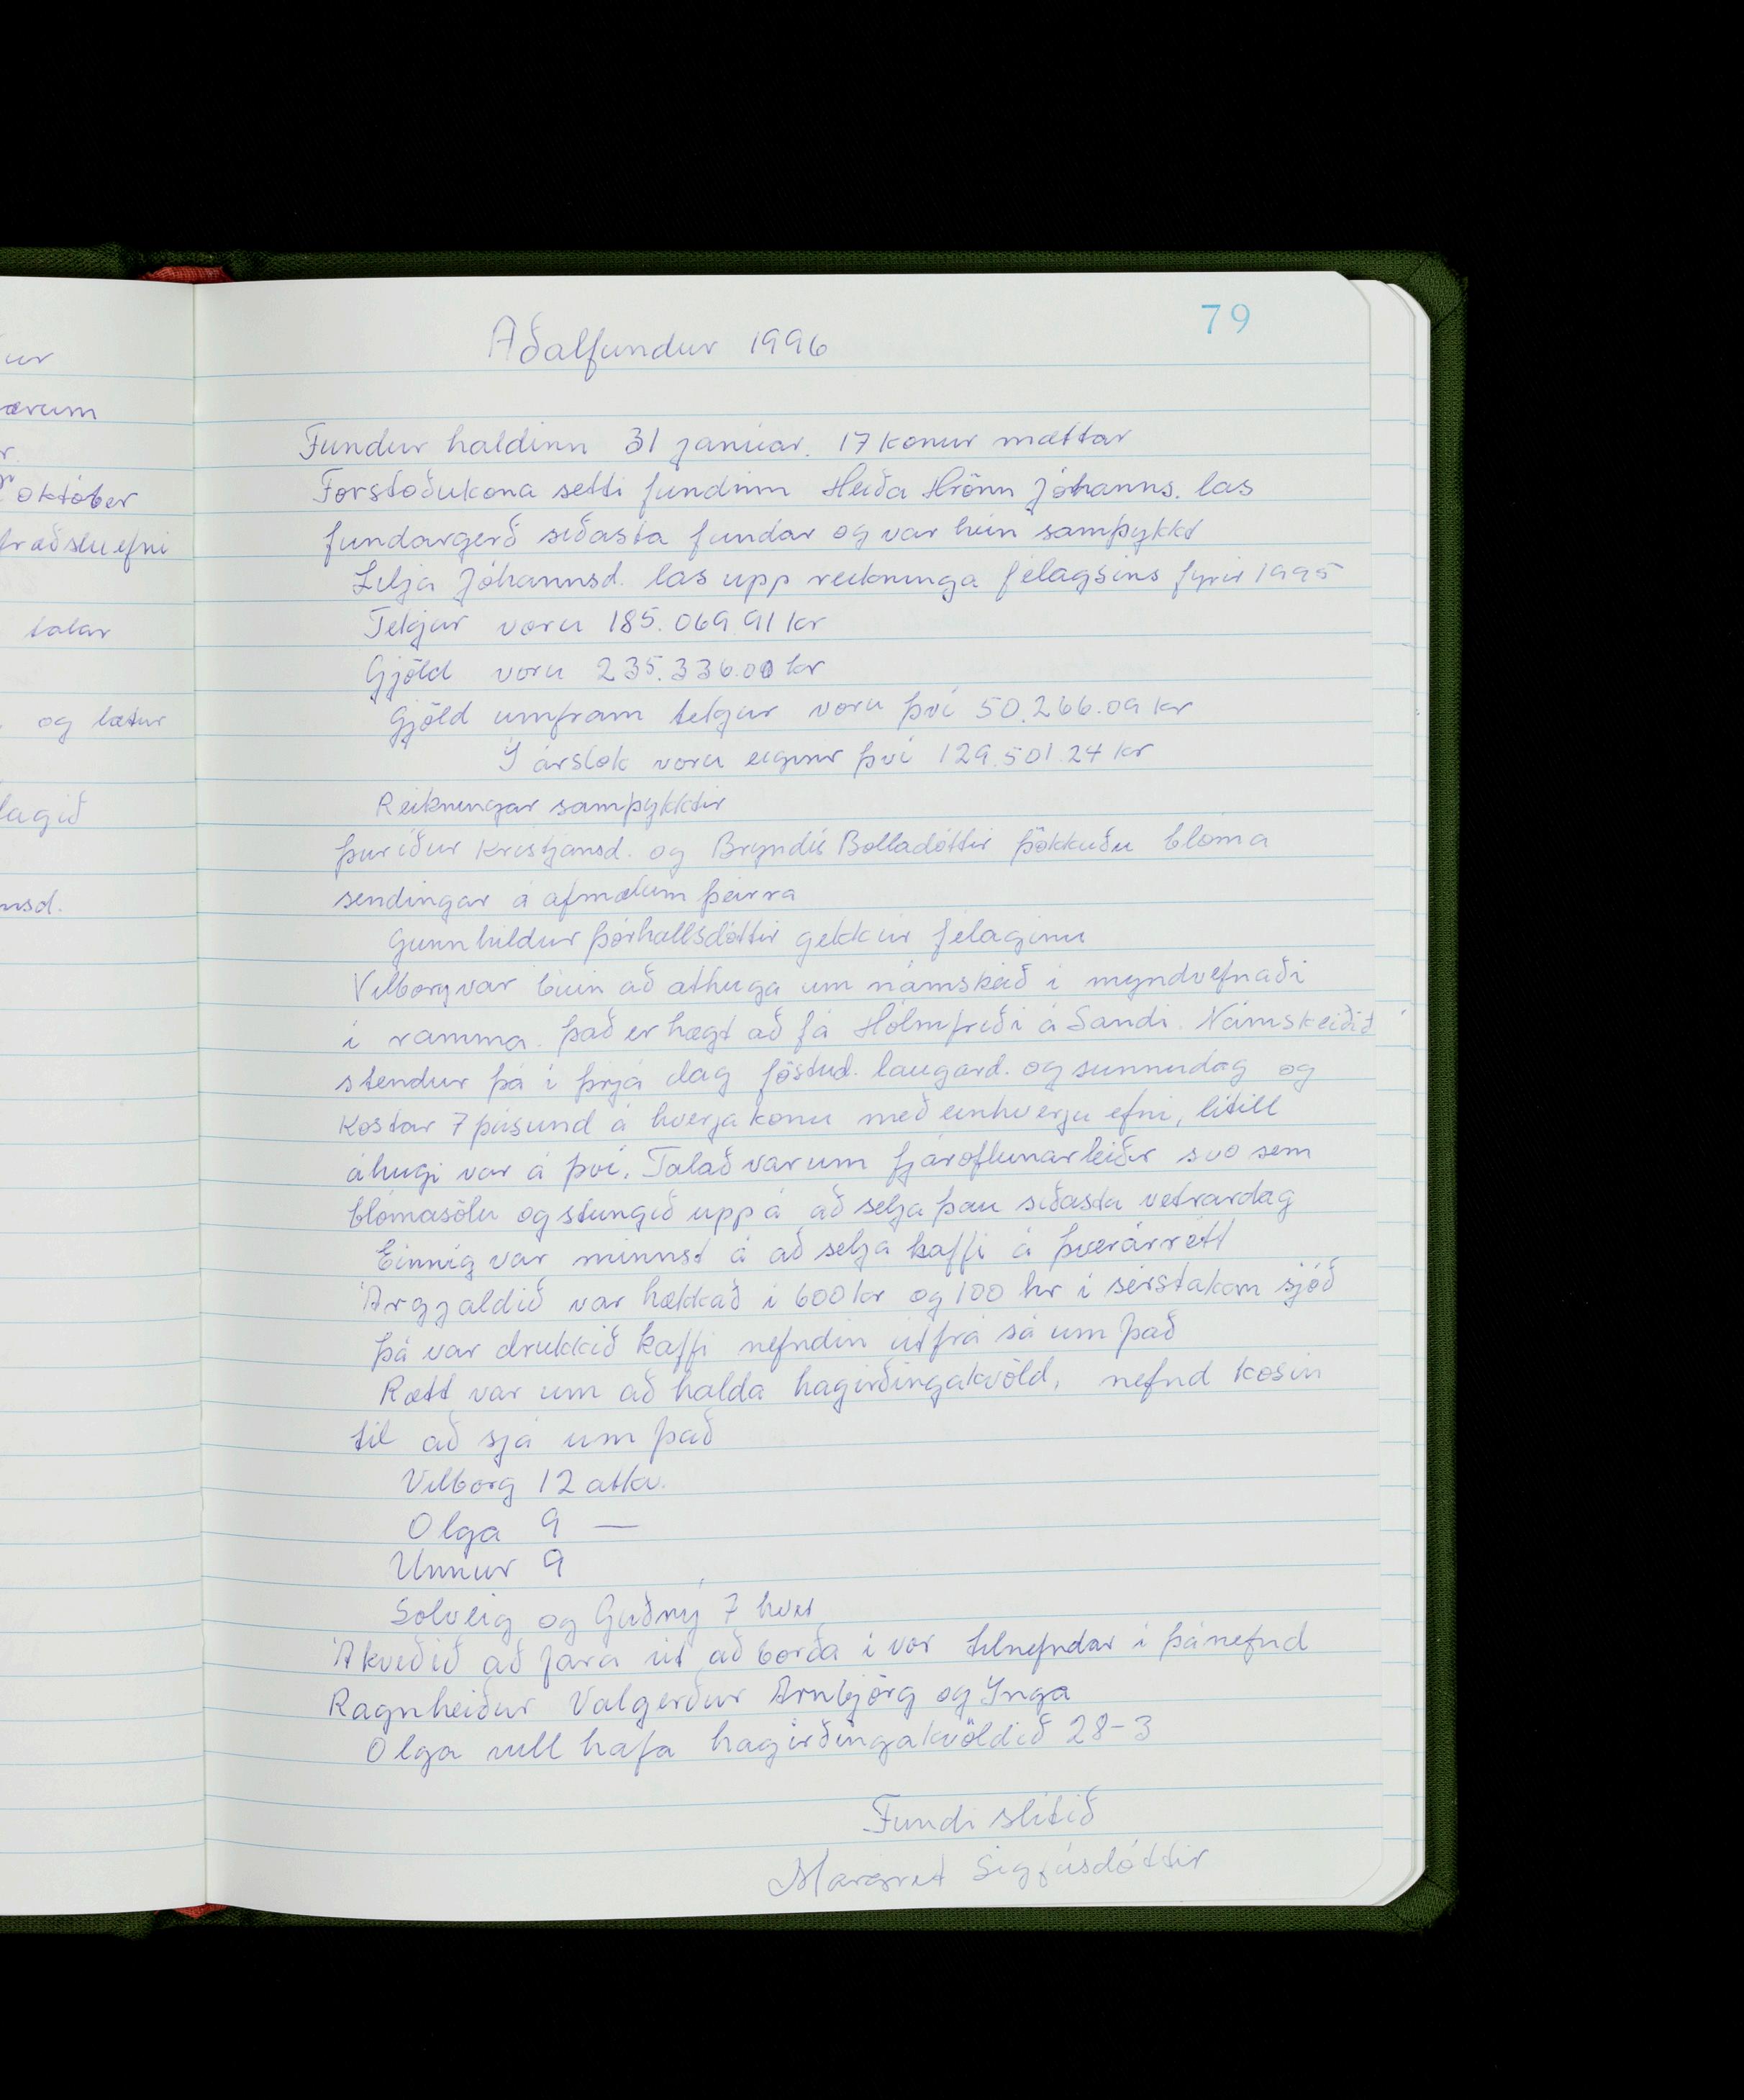 79
Aðalfundur 1996
Fundur haldinn 31 janúar. 17 konur mættar
Forstöðukona setti fundinn Heiða Hrönn Jóhanns. las
fundargerð síðasta fundar og var hún samþykkt
Lilja Jóhannsd. las upp reikninga félagsins fyrir 1995
Tekjur voru 185.069.91 kr
Gjöld voru 235.336.00 kr
Gjöld umfram tekjur voru því 50.266.09 kr
Í árslok voru eignir því 129.501.24 kr
Reikningar samþykktir
Þuríður Kristjánsd. og Bryndís Bolladóttir þökkuðu blóma
sendingar á afmælum þeirra
Gunnhildur Þórhallsdóttir gekk úr félaginu
Vilborg var búin að athuga um námskeið í myndvefnaði
í ramma. Það er hægt að fá Hólmfríði á Sandi. Námskeiðið
stendur þá í þrjá dag föstud. laugard. og sunnudag og
kostar 7 þúsund á hverja konu með einhverju efni, lítill
áhugi var á því. Talað var um fjáröflunarleiðir svo sem
blómasölu og stungið upp á að selja þau síðasta vetrardag
Einnig var minnst á að selja kaffi á Þverárrétt
Árgjaldið var hækkað í 600 kr og 100 kr í sérstakan sjóð
Þá var drukkið kaffi nefndin útfrá sá um það
Rætt var um að halda hagirðingakvöld, nefnd kosin
til að sjá um það
Vilborg 12 atkv.
Olga 9 —
Unnur 9
Solveig og Guðný 7 hver
Ákveðið að fara út að borða í vor tilnefndar í þá nefnd
Ragnheiður Valgerður Arnbjörg og Ynga
Olga vill hafa hagirðingakvöldið 28-3
Fundi slitið
Margret Sigfúsdóttir
ur
ærum
r.
október
fræðsluefni
talar
og lætur
lagið
nsd.